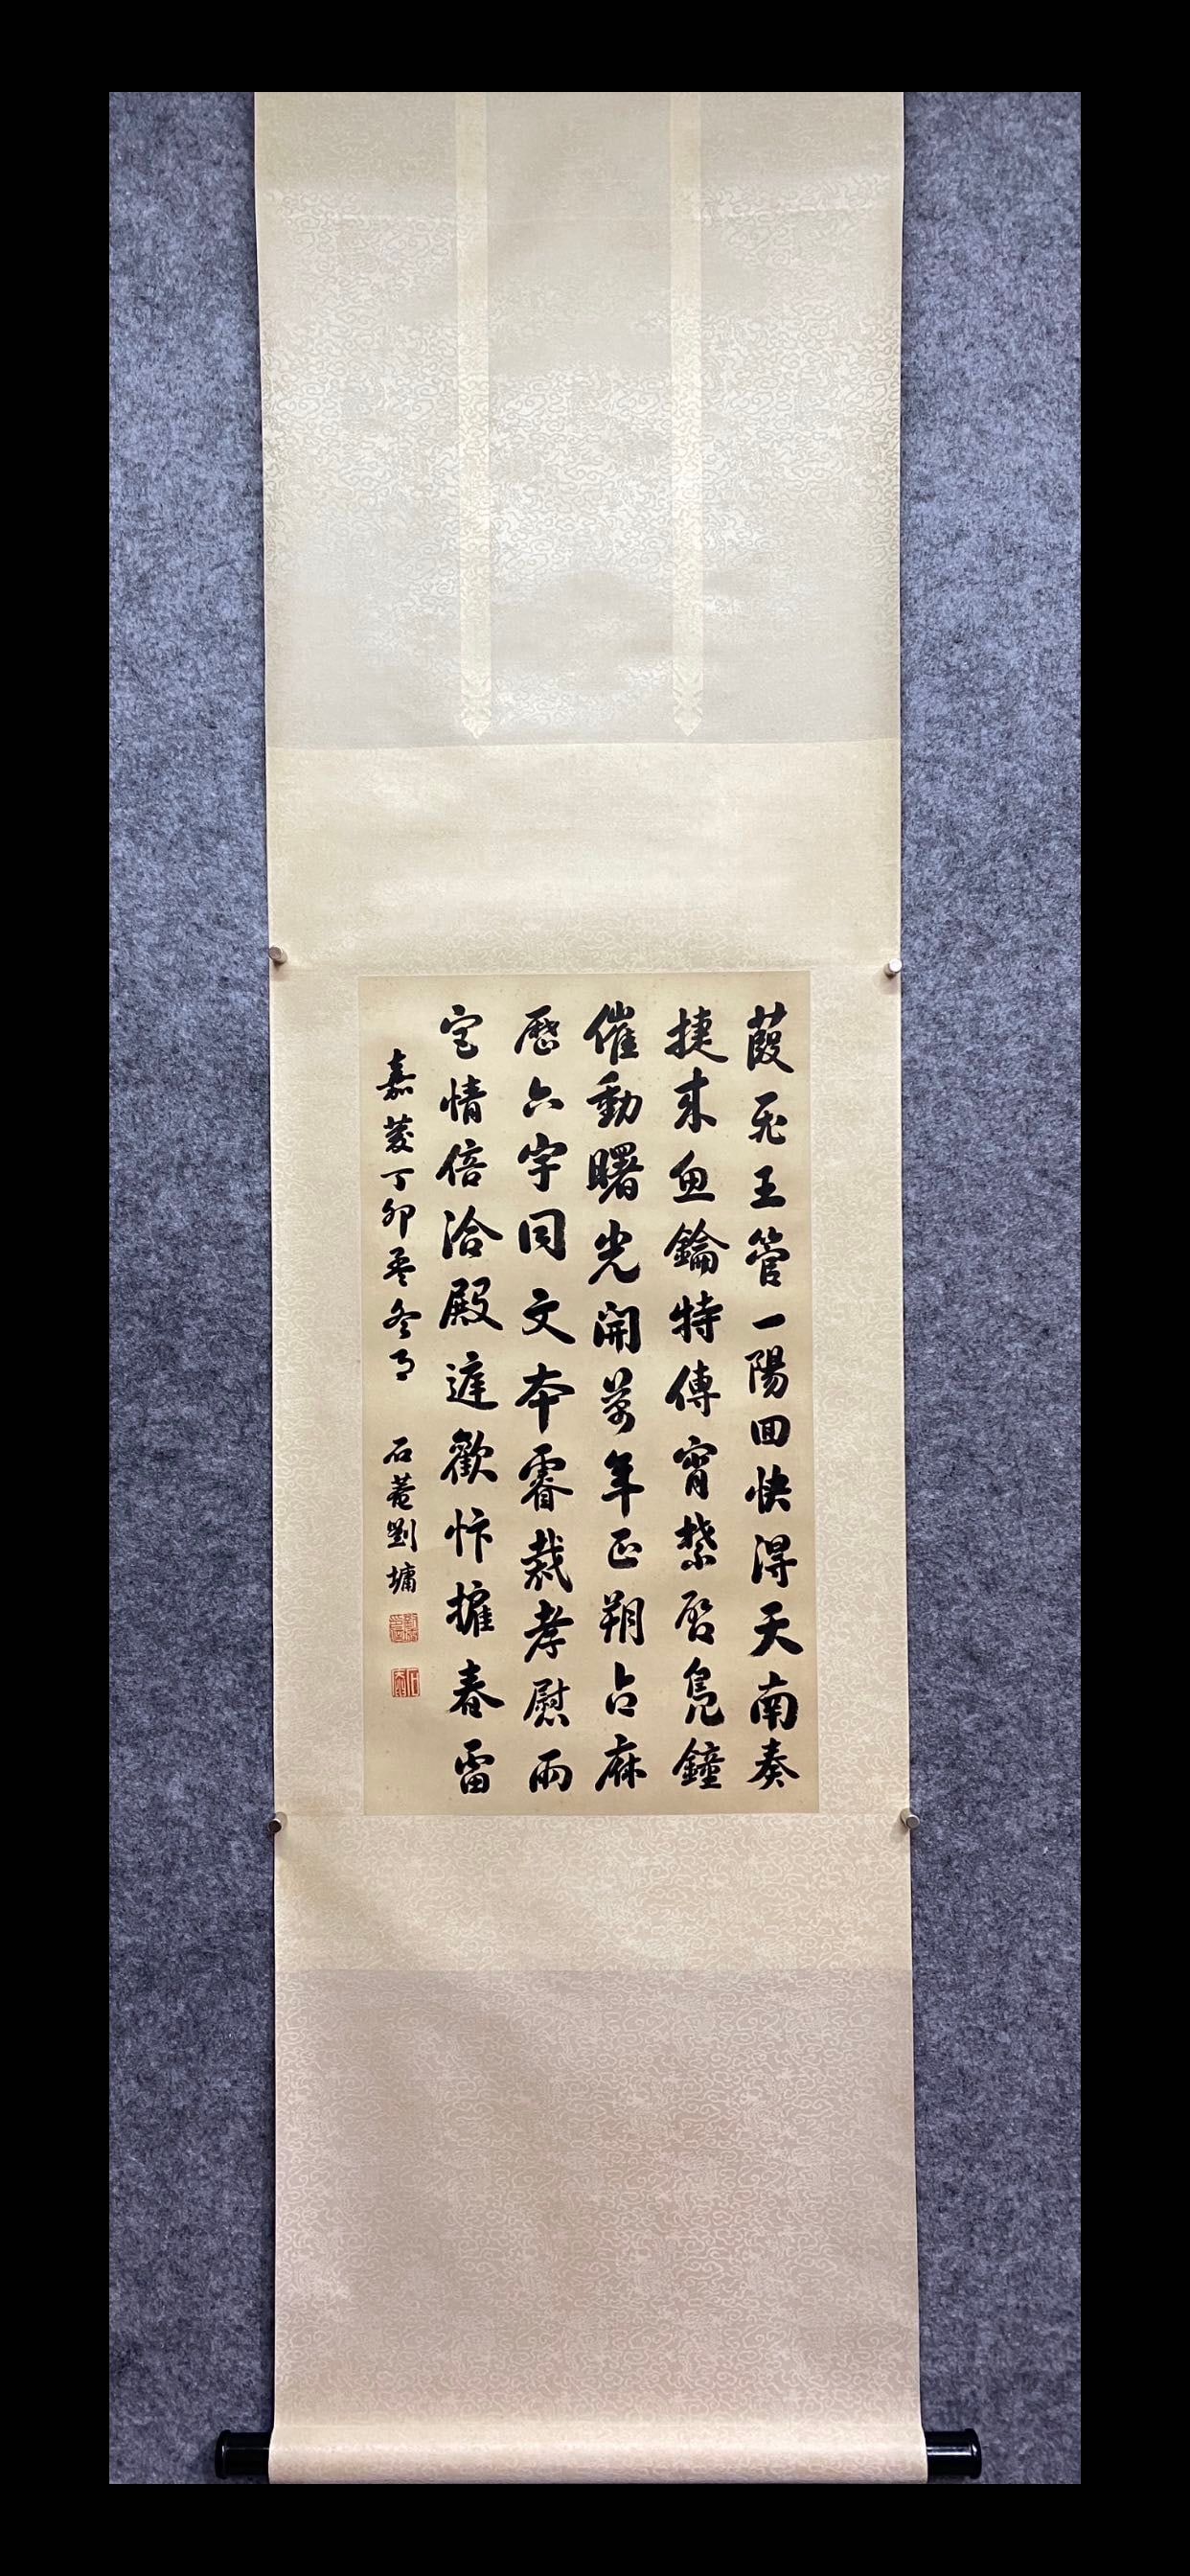 葭飛玉管一陽回快得天南奏
捷來魚鑰特傳宵禁啓鳧鐘
催動曙光開萬年正朔占麻
歷六字同文本睿裁孝慰兩
宮情倍洽殿筵歡忭擁春雷
嘉慶丁卯孟冬月 石菴劉墉